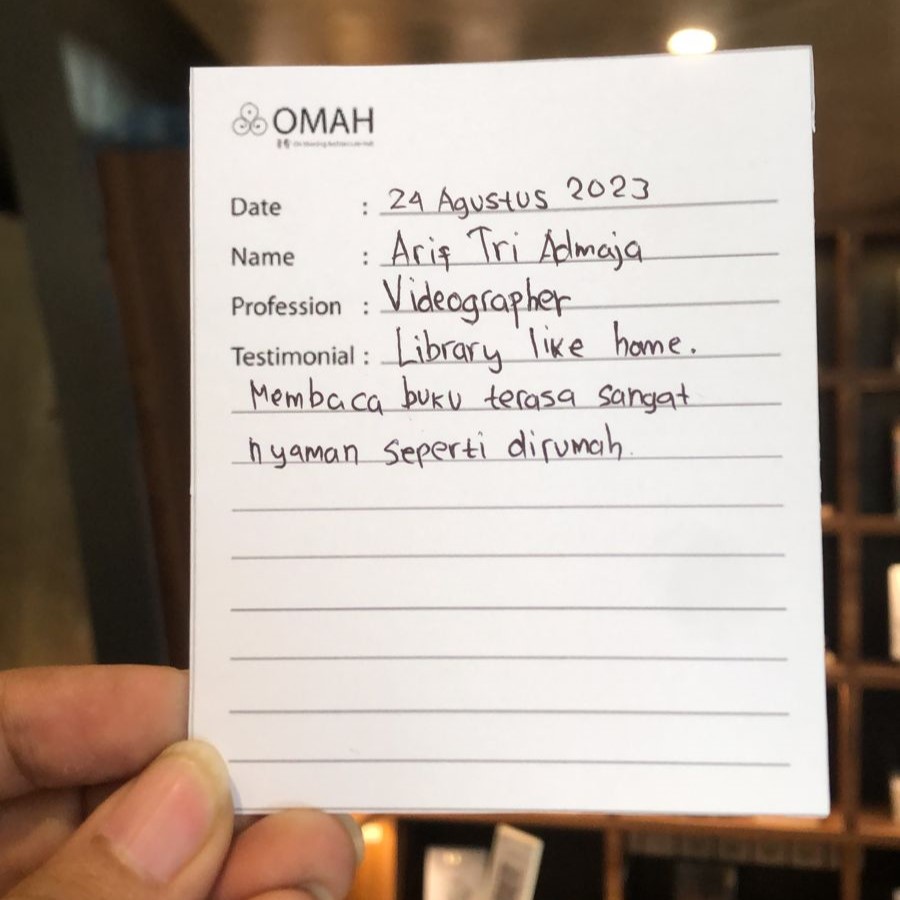 OMAH
Date : 24 Agustus 2023
Name : Arif Tri Admaja
Profession : Videographer
Testimonial : Library like home.
Membaca buku terasa sangat
nyaman seperti dirumah.